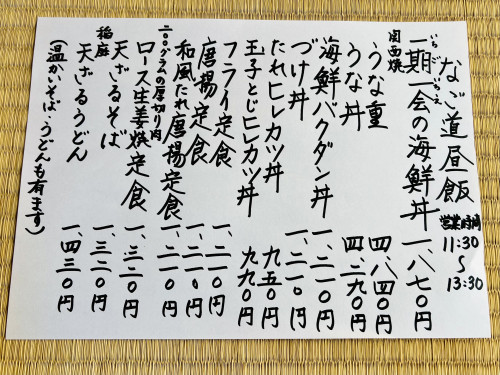 なご道昼飯
営業時間
11:30
〜
13:30
いちごいちえ
一期一会の海鮮丼 一、八七〇円
関西焼
うな重 四、八四〇円
うな丼 四、二九〇円
海鮮バクダン丼 一、二一〇円
づけ丼 一、二一〇円
たれヒレカツ丼 九五〇円
玉子とじヒレカツ丼 九九〇円
フライ定食 一、二一〇円
唐揚定食 一、二一〇円
和風たれ唐揚定食 一、二一〇円
二〇〇グラムの厚切り肉
ロース生姜焼定食 一、三二〇円
天ざるそば 一、三二〇円
稲庭
天ざるうどん 一、四三〇円
(温かいそば・うどんも有ります)